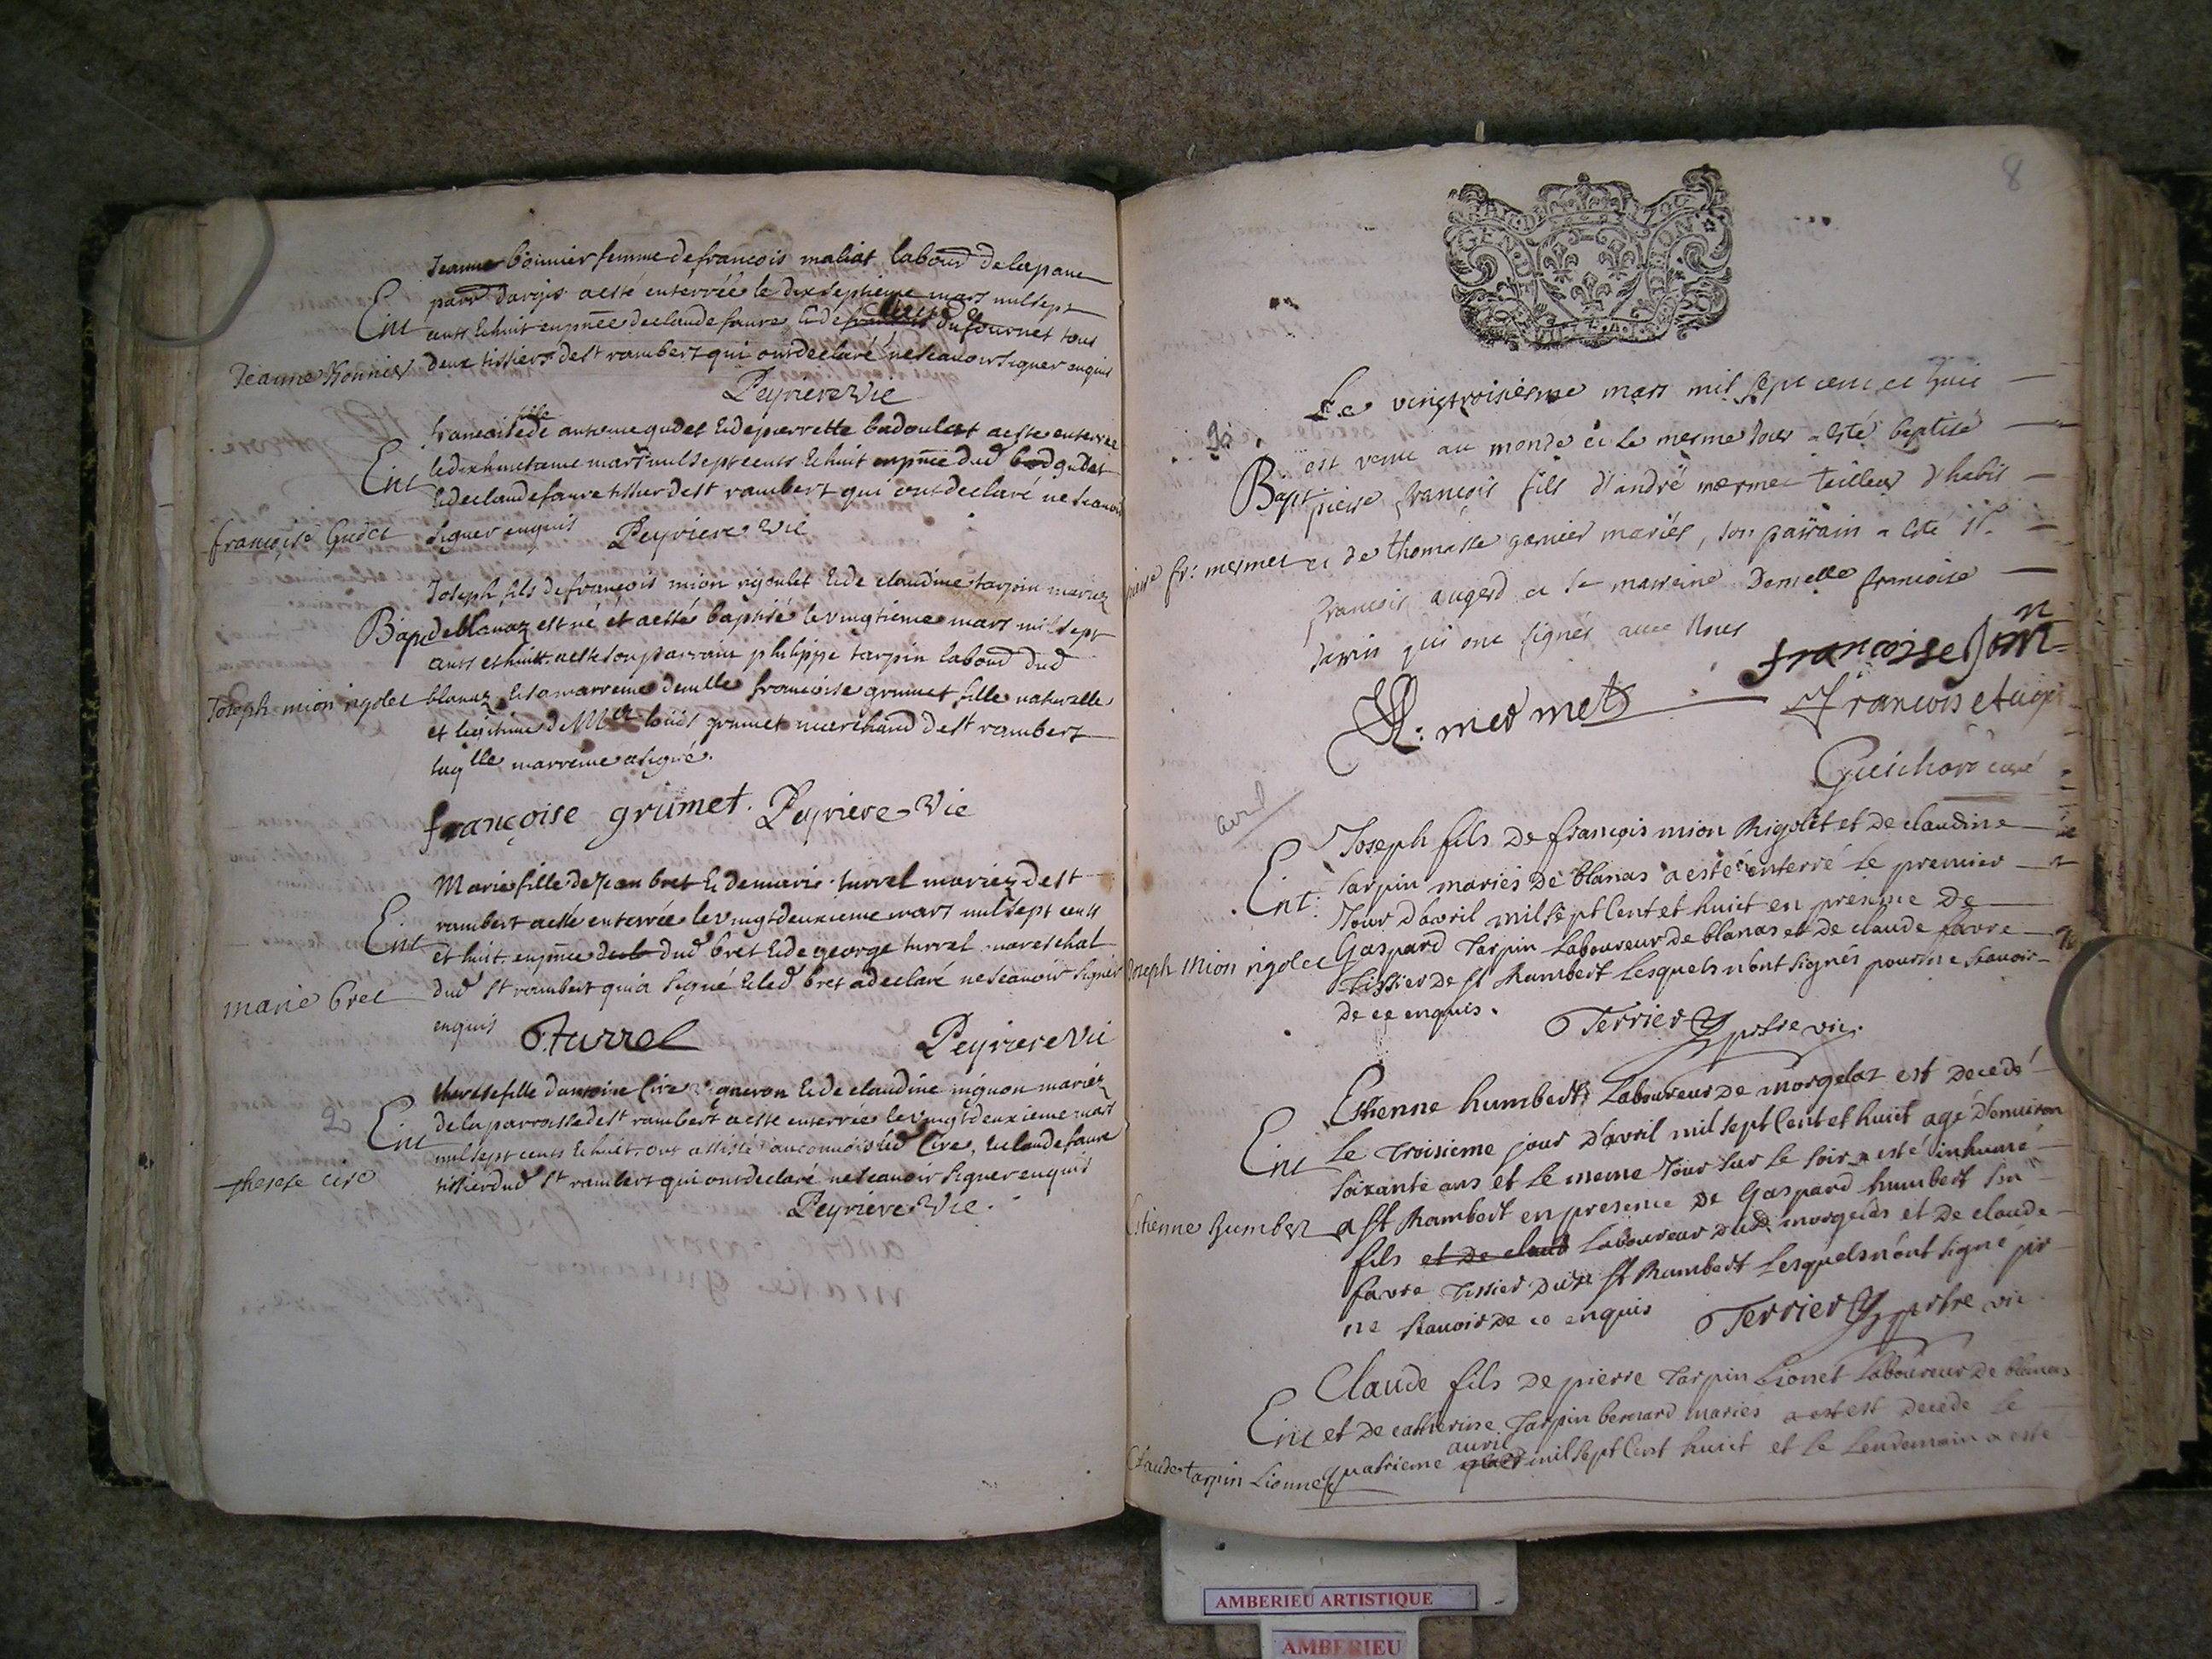 Jeanne bonnier femme de francois maliat labourr de la pane
parr. d'argis a esté enterrée le dixseptieme mars mil sept
Ent
cents & huit en pnce de claude favre & de dufournet tous
deux tissiers de st rambert qui ont declaré ne scavoir signer enquis
Jeanne Bonnier
Peyriere Vic
francoise fille de antoine gudet & de pierrette badoulat a esté enterrée
le dixhuictieme mars mil sept cents & huit en pnce dud gudet
Ent
& de claude favre tissier de st rambert qui ont declaré ne scavoir
signer enquis Peyriere Vic
françoise Gudet
Joseph fils de francois mion rigoulet & de claudine tarpin mariez
Bap de blanaz est né et a esté baptisé le vingtieme mars mil sept
cents et huit a esté son parrain philippe tarpin labourr dud
blanaz & sa marreine demlle francoise grumet fille naturelle
Joseph mion rigolet
et legitime de Mr louis grumet marchand de st rambert
laqlle marreine a signé.
françoise grumet. Peyriere Vic
Marie fille de Jean bret & de marie turrel mariez de st
rambert a esté enterrée le vingtdeuxieme mars mil sept cents
Ent
et huit en pnce dud bret & de george turrel mareschal
dud st rambert qui a signé & led bret a declaré ne scavoir signer
marie bret
enquis Turrel Peyriere Vic
therese fille d'antoine cire vigneron & de claudine mignon mariez
de la parroisse de st rambert a esté enterrée le vingtdeuxieme mars
2 Ent
mil sept cents & huit ont assisté au convois led Cire, & claude favre
tissier dud st rambert qui ont declaré ne scavoir signer enquis
therese cire
Peyriere Vic.
8
GEN
Le vingtroisiesme mars mil sept cent et huit
est venu au monde et le mesme jour a esté baptisé
Bapt pierre françois fils d'andré mermet tailleur d'habis
pierre fr: mermet et de thomasse garnier mariés, son parrain a esté sr
francois augerd et sa marreine Demselle francoise
Janin qui ont signés avec nous
francoise Janin
A: mermet
francois Auger
Guichard curé
avril
Joseph fils de françois mion Rigolet et de claudine
Tarpin mariés de blanas a esté enterré le premier
Ent:
Jour d'avril mil sept Cent et huit en presence de
Gaspard Tarpin Laboureur de blanas et de claude favre
Joseph Mion rigolet
tissier de st Rambert Lesquels n'ont signés pour ne scavoir
de ce enquis.
Terrier prstre vic.
Etienne humbert Laboureur de morgelaz est decedé
Ent
Le Troisieme jour d'avril mil sept Cent et huit agé d'environ
soixante ans et le meme Jour sur le soir a esté inhumé
a st Rambert en presence de Gaspard humbert son
Etienne humber
fils et de claud Laboureur dud morgelas et de claude
favre tissier dud st Rambert Lesquels n'ont signé pr
ne scavoir de ce enquis Terrier prstre vic
Claude fils de pierre Tarpin Lionet Laboureur de blanas
Ent et de catherine Tarpin bernard mariés est decede le
quatrieme avril mil sept Cent huit et le lendemain a esté
Claude tarpin Lionnet
AMBERIEU ARTISTIQUE
AMBERIEU